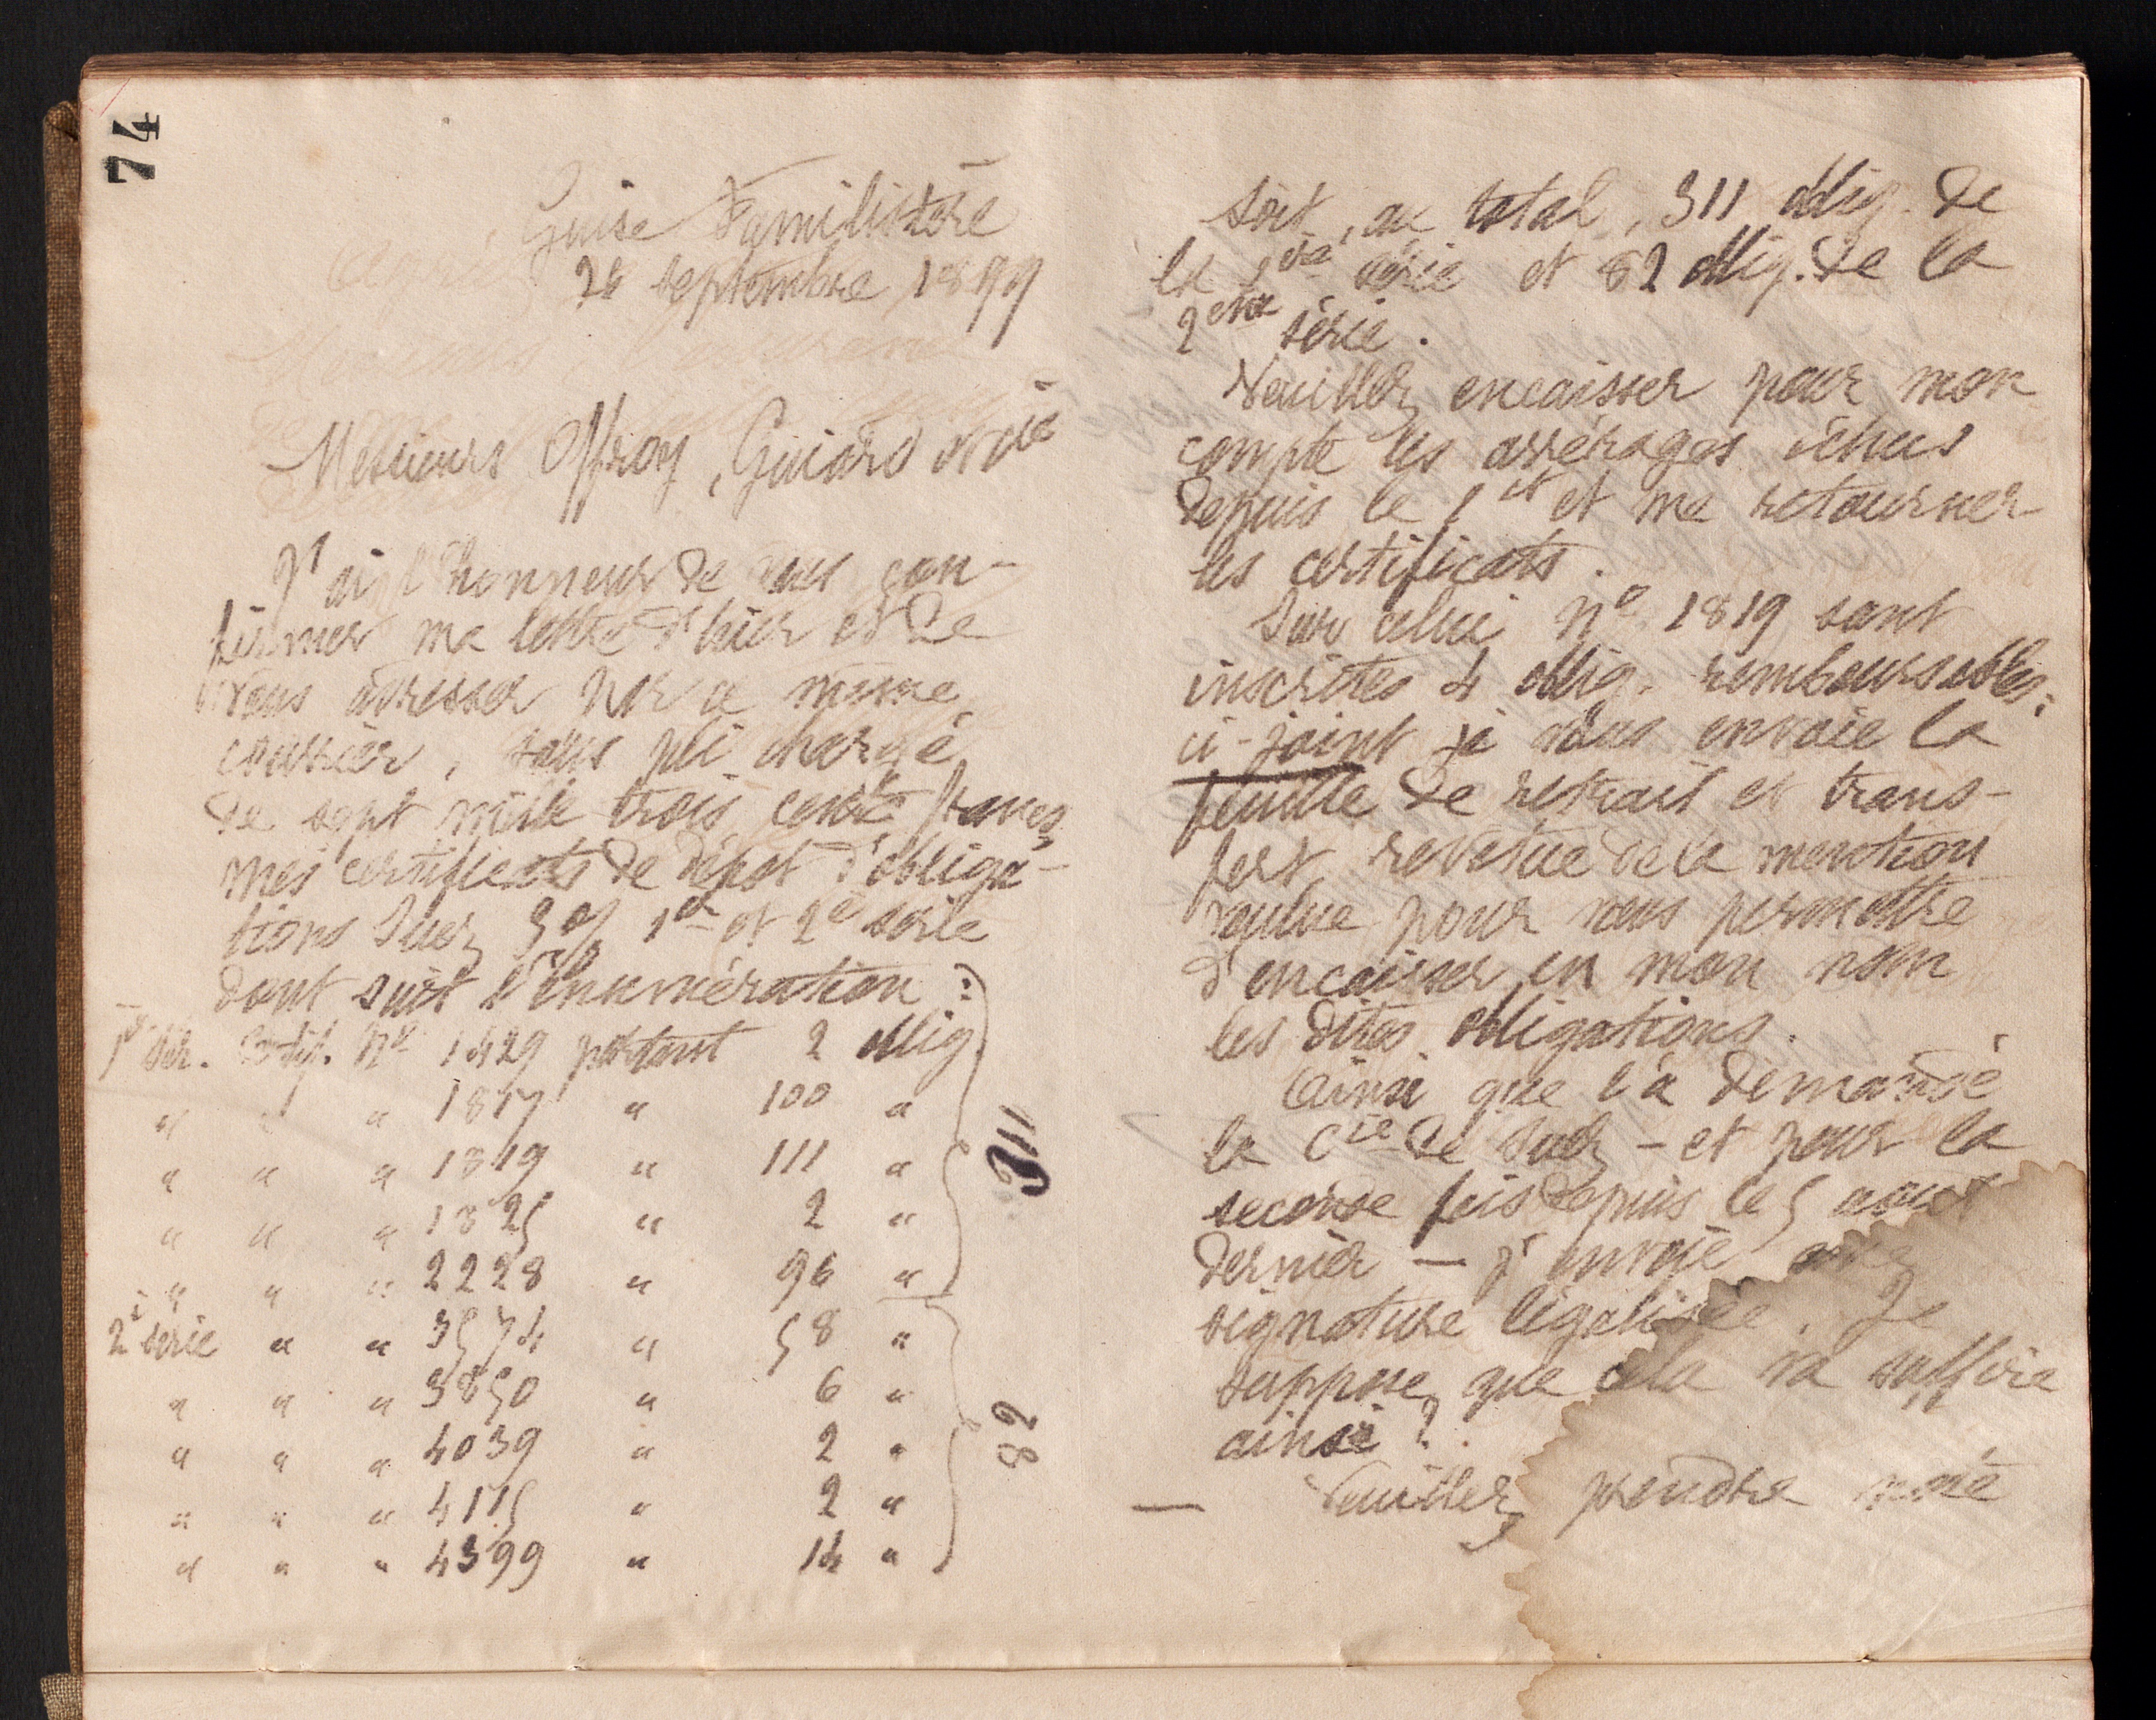 74
Guise Familistère
26 septembre 1899
Messieurs Offroy, Guiard & Cie
J'ai l'honneur de vous con-
firmer ma lettre d'hier et de
vous adresser par ce même
courrier, sous pli chargé
de sept mille trois cents francs,
mes certificats de dépôt d'obliga-
tions Suez 3% 1ère et 2e série
dont suit l'énumération :
1e sér. Certif. No 1429 portant 2 oblig.
" " " 1817 " 100 "
" " " 1819 " 111 "
" " " 1825 " 2 "
" " " 2228 " 96 "
311
2e série " " 3574 " 58 "
" " " 3850 " 6 "
" " " 4039 " 2 "
" " " 4115 " 2 "
" " " 4399 " 14 "
82
Soit, au total, 311 oblig. de
la 1ère série et 82 oblig. de la
2ème série.
Veuillez encaisser pour mon
compte les arrérages échus
depuis le 1er et me retourner
les certificats.
Sur celui no 1819 sont
inscrites 4 oblig. remboursables;
ci-joint je vous envoie la
feuille de retrait et trans-
fert revêtue de la mention
voulue pour vous permettre
d'encaisser en mon nom
les dites obligations.
Ainsi que l'a demandé
la Cie de Suez – et pour la
seconde fois depuis le 5 août
dernier — j'envoie
signature légalisée. Je
suppose que cela va suffire
ainsi ?
— Veuillez prendre note